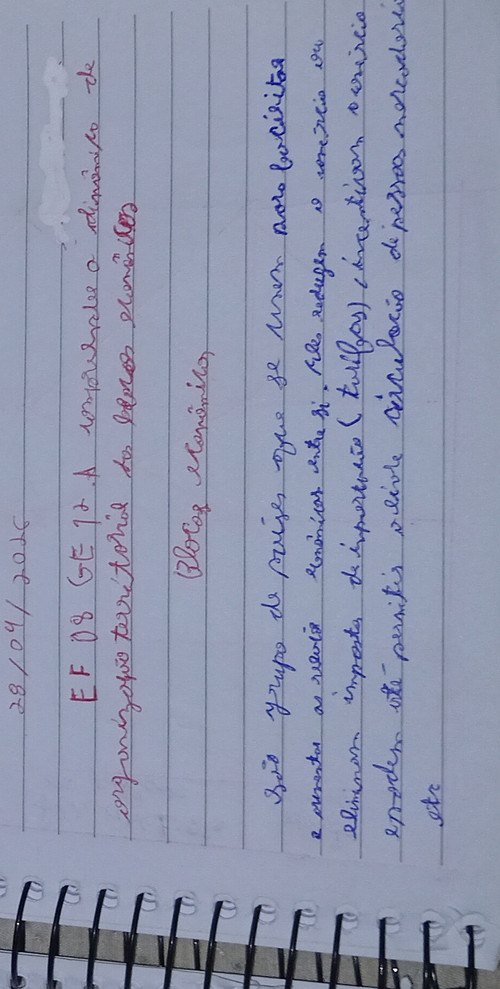 29/04/2026
EF 08 GE 12 A compreende a dinâmica de
organização territorial dos blocos econômicos
Blocos econômicos
São grupo de países que se unem para facilitar
e aumentar as relações econômicas entre si. Eles reduzem o comércio ou
eliminam impostos de importação (tarifas), incentivam o comércio
e podem até permitir a livre circulação de pessoas mercadoria
etc